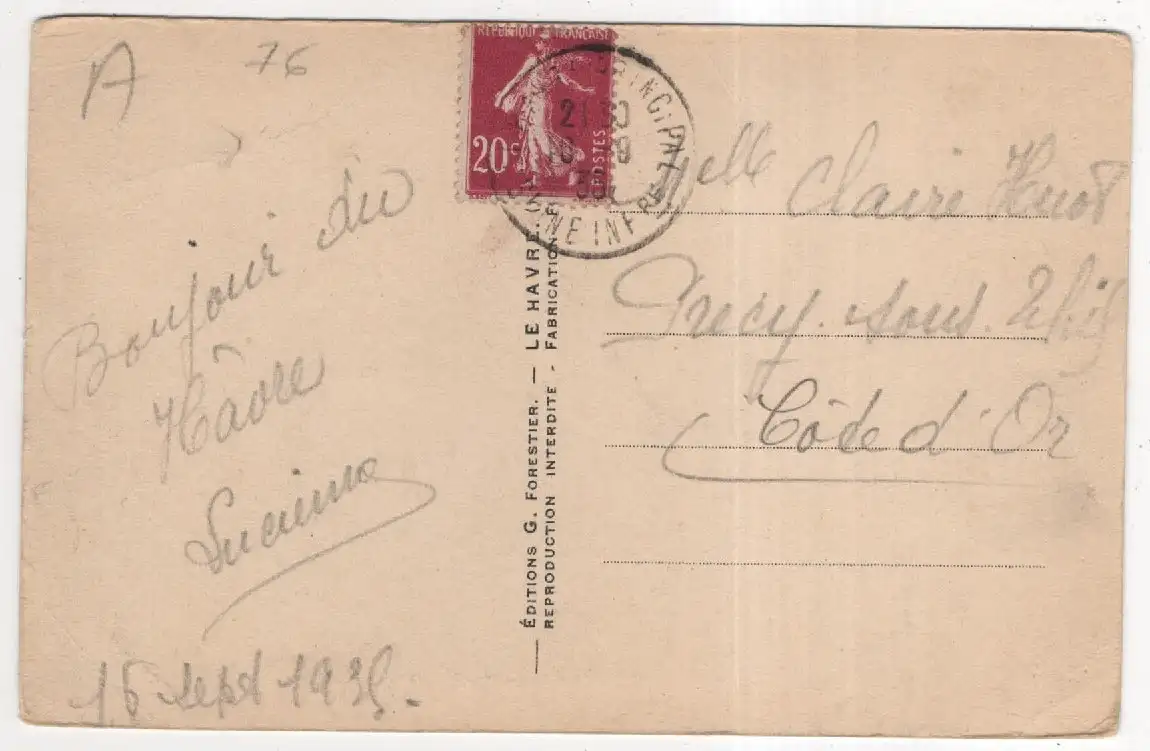 A
76
Bonjour du
Hâvre
Lucienne
16 sept 1935.
RÉPUBLIQUE FRANÇAISE
20c
POSTES
PRINCIPAL
21 30
16 -9
35
SEINE INFRE
— ÉDITIONS G. FORESTIER. — LE HAVRE.
REPRODUCTION INTERDITE - FABRICATION
Melle Claire Huot
sous
Côte d'Or